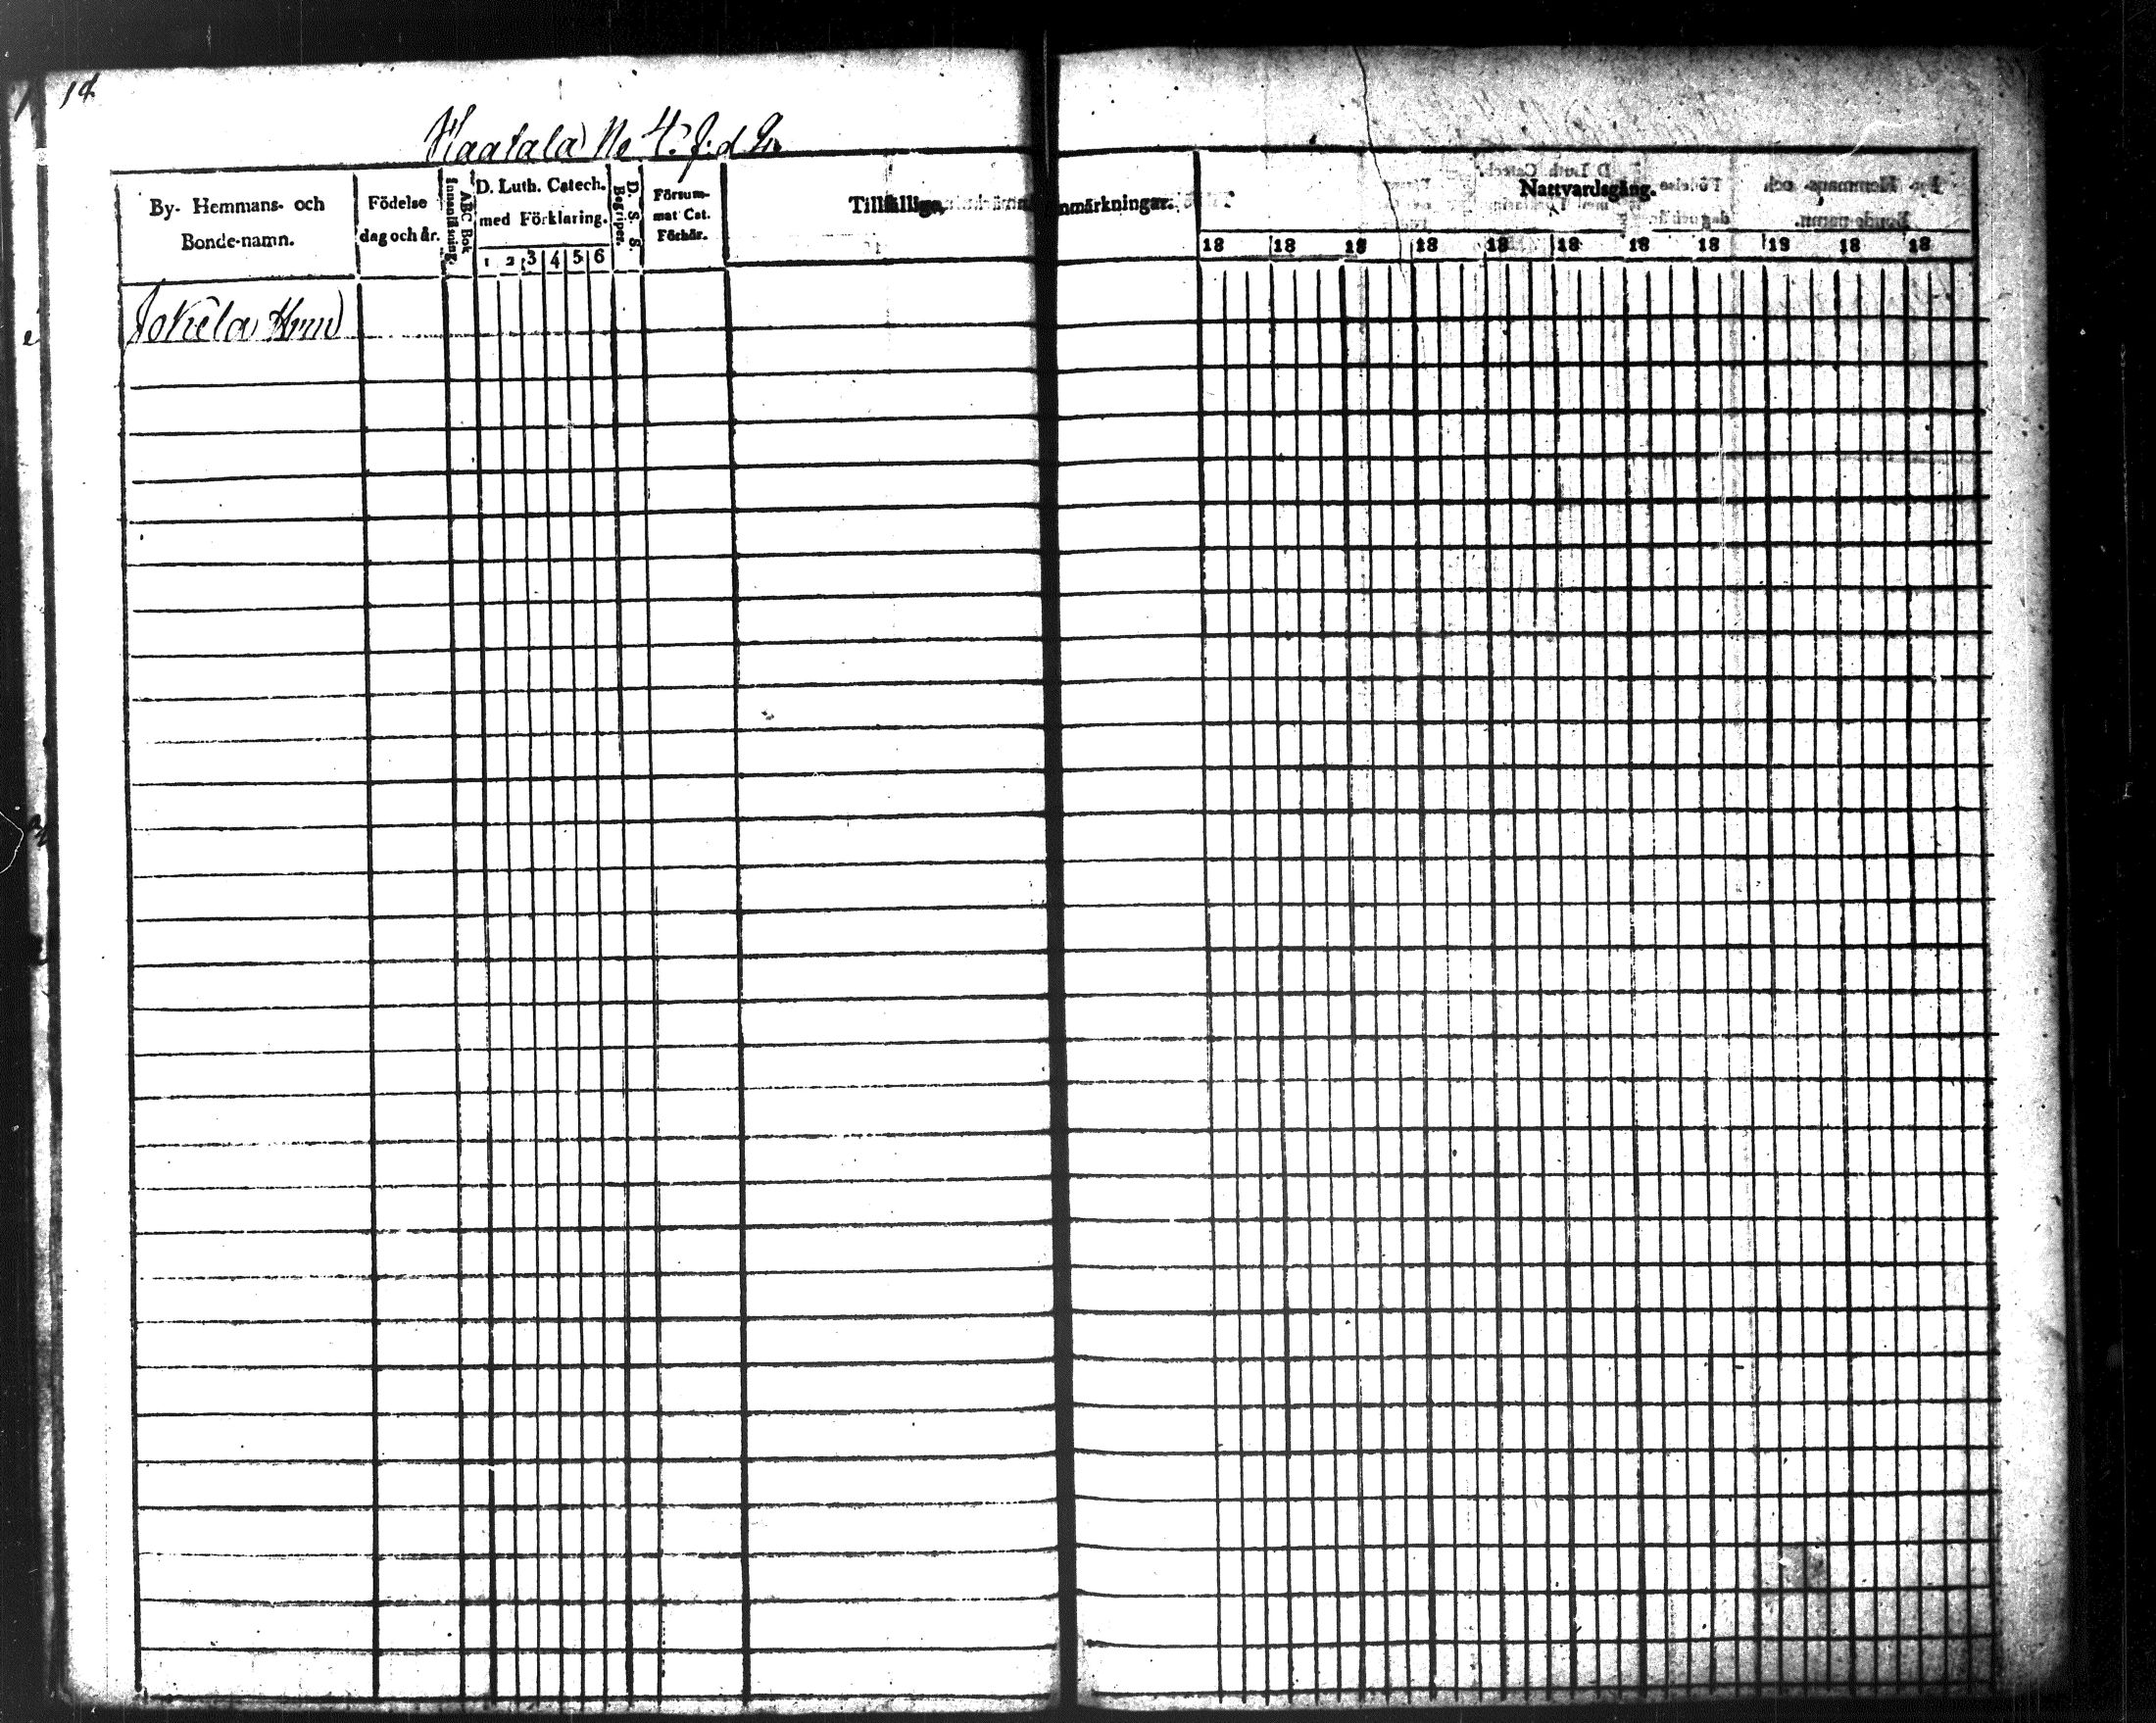 14
Haatala No 4.
By- Hemmans- och
Bonde-namn.
Födelse
dag och år.
ABC Bok
Innanläsning.
D. Luth. Catech.
med Förklaring.
1 2 3 4 5 6
D. S. S.
Begriper.
Försum-
mat Cat.
Förhör.
Tillfällige Anmärkningar.
Nattvardsgång.
18 18 18 18 18 18 18 18 18 18 18
Jokela Hem̅